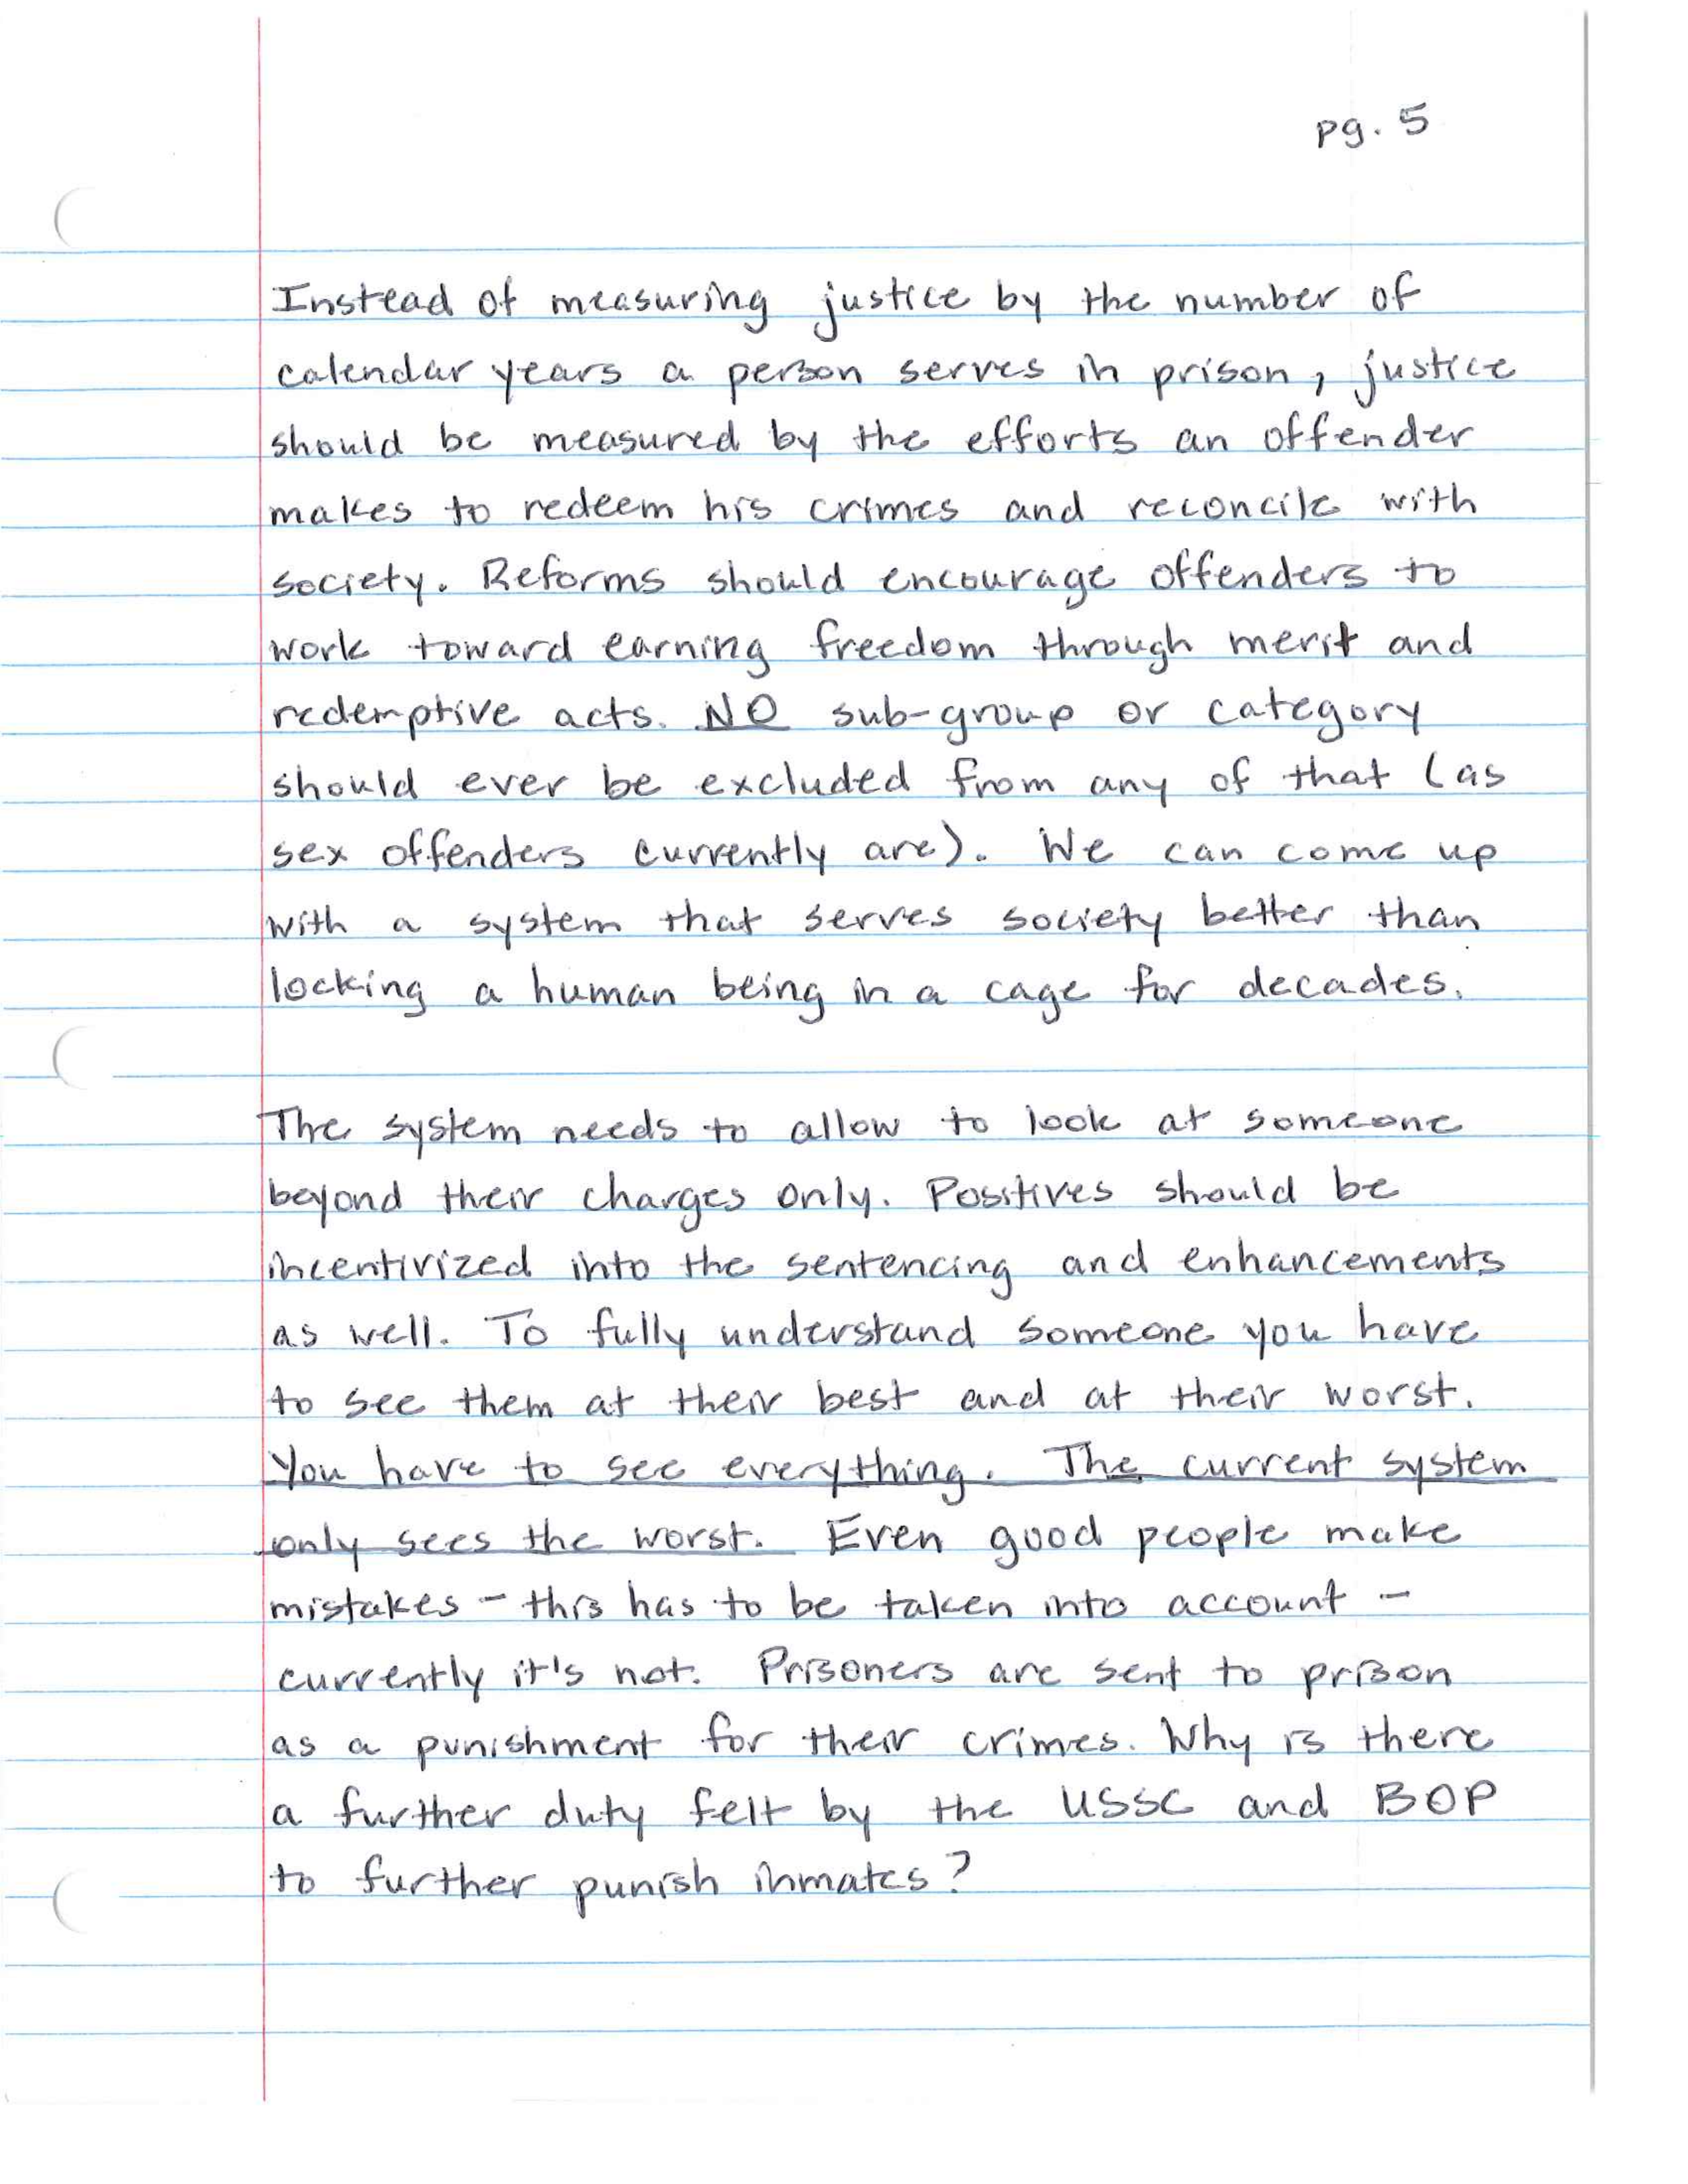 pg. 5
Instead of measuring justice by the number of
calendar years a person serves in prison, justice
should be measured by the efforts an offender
makes to redeem his crimes and reconcile with
society. Reforms should encourage offenders to
work toward earning freedom through merit and
redemptive acts. NO sub-group or category
should ever be excluded from any of that (as
sex offenders currently are). We can come up
with a system that serves society better than
locking a human being in a cage for decades.
The system needs to allow to look at someone
beyond their charges only. Positives should be
incentivized into the sentencing and enhancements
as well. To fully understand someone you have
to see them at their best and at their worst.
You have to see everything. The current system
only sees the worst. Even good people make
mistakes - this has to be taken into account -
currently it's not. Prisoners are sent to prison
as a punishment for their crimes. Why is there
a further duty felt by the USSC and BOP
to further punish inmates?